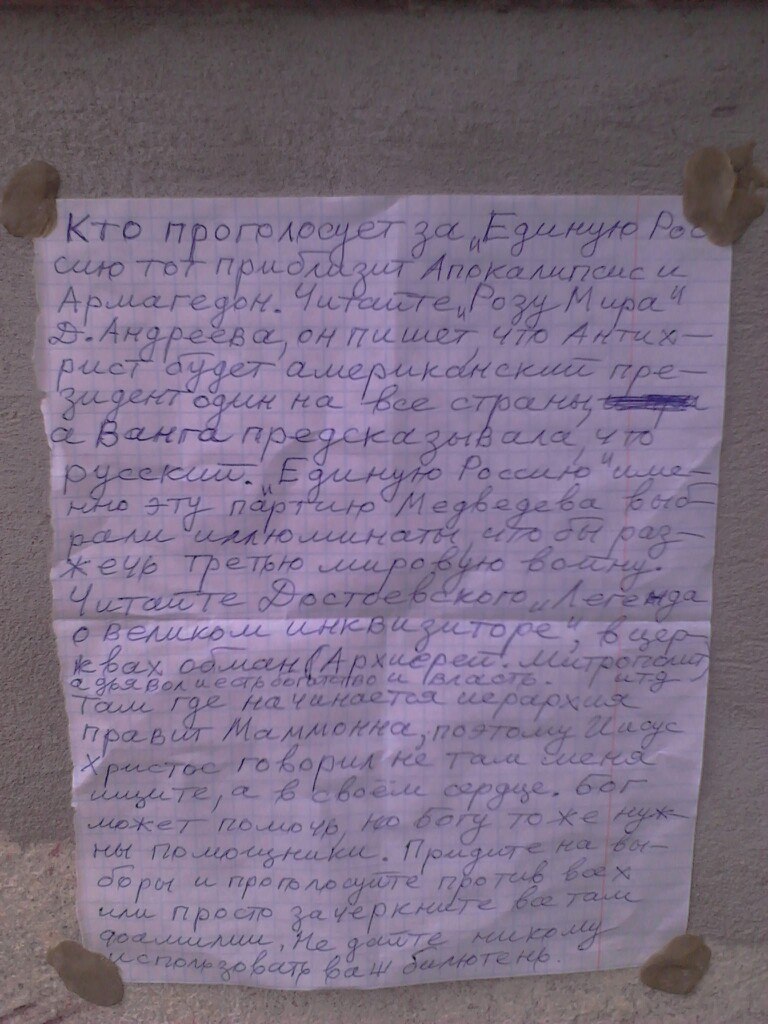 Кто проголосует за „Единую Рос
сию тот приблизит Апокалипсис и
Армагедон. Читайте „Розу Мира"
Д. Андреева, он пишет, что Антих-
рист будет американский пре-
зидент один на все страны,
а Ванга предсказывала, что
русский. „Единую Россию" име-
нно эту партию Медведева выб-
рали иллюминаты, что бы раз-
жечь третью мировую войну.
Читайте Достоевского „Легенда
о великом инквизиторе", в цер-
квах обман (Архиерей. Митрополит)
а дьявол и есть богатство и власть. итд
Там где начинается иерархия
правит Маммонна, поэтому Иисус
Христос говорил не там меня
ищите, а в своём сердце. Бог
может помочь, но Богу то же нуж-
ны помощники. Придите на вы-
боры и проголосуйте против всех
или просто зачеркните все там
фамилии. Не дайте никому
использовать ваш билютень.